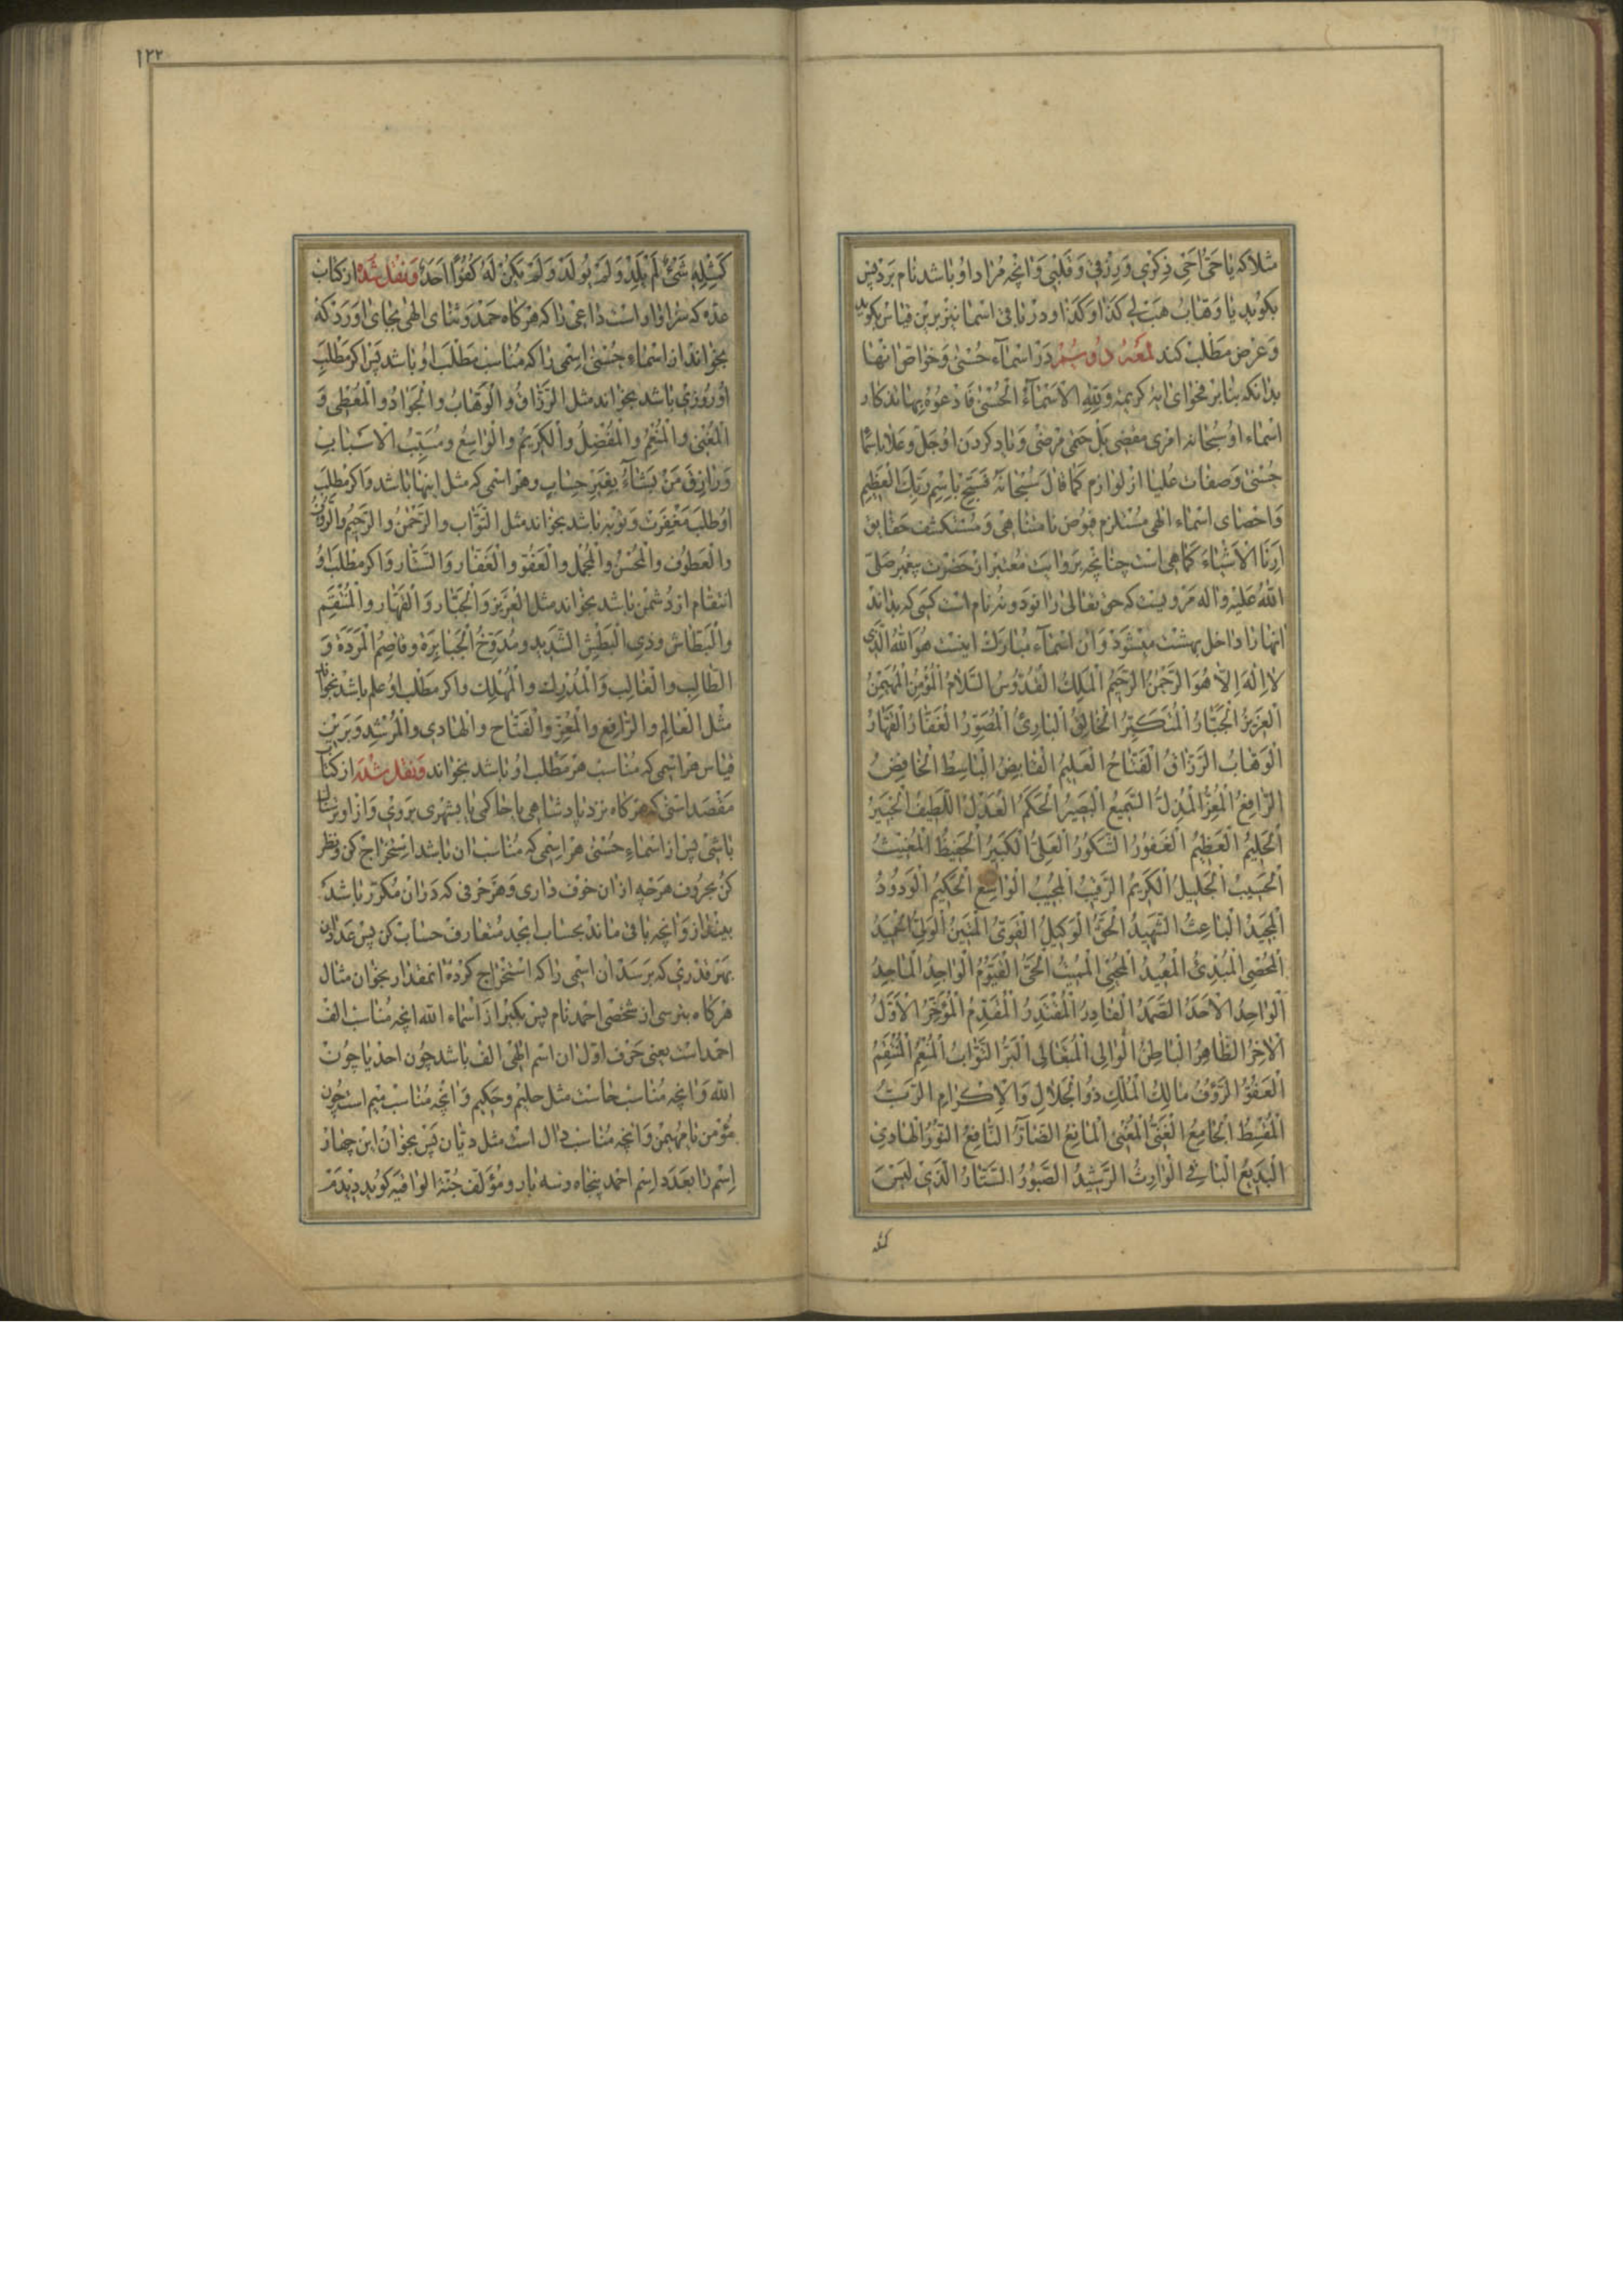 مثلا که یا حَیّ اَحیِ ذِکری وَ رِزقی وَ قَلبی وَ انچه مُراد او باشد نام بَرد پس
بکوید یا وَهّابُ هَب لی کذا و کذا و در باقی اسما نیز برین قیاس بکوید
وَ عرض مَطلب کند لمعهٔ دوُسیُم دَر اسماء حُسنی و خواص انها
بدانکه بنا بر فحوای ایهٔ کریمه وَلِلّهِ الاَسماءُ الحُسنی فَادعُوهُ بِها اذکار
اسماء او سُبحانه امری مقضی بَل حتمی مرضی وَ یاد کردن او جَلّ وَعَلا باسما
حُسنی وَ صفات عُلیا از لوازم کَما قالَ سُبحانَهُ فَسَبِّح بِاسمِ رَبِّکَ العَظیمِ
وَ احصای اسماء الهی مُستلزم فیوض نامتناهی وَ مُستکشف حقایق
اَرِنَا الاَشیاءَ کَما هی است چنانچه بَروایت مُعتبر از حضرت پیغمبر صَلّی
اللهُ عَلیهِ وَ اله مَرویست که حق تعالی را نود و نه نام است کسی که بداند
انها را داخل بهشت میشود وَ ان اسماء مُبارک اینست هُوَ اللهُ الَّذی
لا اِلهَ اِلاّ هُوَ الرَّحمنُ الرَّحیمُ المَلِکُ القُدّوسُ السَّلامُ المُؤمِنُ المُهَیمِنُ
العَزیزُ الجَبّارُ المُتَکَبِّرُ الخالِقُ البارِئُ المُصَوِّرُ الغَفّارُ القَهّارُ
الوَهّابُ الرَّزّاقُ الفَتّاحُ العَلیمُ القابِضُ الباسِطُ الخافِضُ
الرّافِعُ المُعِزُّ المُذِلُّ السَّمیعُ البَصیرُ الحَکَمُ العَدلُ اللَّطیفُ الخَبیرُ
الحَلیمُ العَظیمُ الغَفورُ الشَّکورُ العَلِیُّ الکَبیرُ الحَفیظُ المُغیثُ
الحَسیبُ الجَلیلُ الکَریمُ الرَّقیبُ المُجیبُ الواسِعُ الحَکیمُ الوَدودُ
المَجیدُ الباعِثُ الشَّهیدُ الحَقُّ الوَکیلُ القَوِیُّ المَتینُ الوَلِیُّ الحَمیدُ
المُحصِی المُبدِئُ المُعیدُ المُحیِی المُمیتُ الحَیُّ القَیّومُ الواجِدُ الماجِدُ
الواحِدُ الاَحَدُ الصَّمَدُ القادِرُ المُقتَدِرُ المُقَدِّمُ المُؤَخِّرُ الاَوَّلُ
الاخِرُ الظّاهِرُ الباطِنُ الوالِی المُتَعالِی البَرُّ التَّوّابُ المُنعِمُ المُنتَقِمُ
العَفُوُّ الرَّؤفُ مالِکُ المُلکِ ذُو الجَلالِ وَالاِکرامِ الرَّبُّ
المُقسِطُ الجامِعُ الغَنِیُّ المُغنِی المانِعُ الضّارُّ النّافِعُ النّورُ الهادِی
البَدیعُ الباقِی الوارِثُ الرَّشیدُ الصَّبورُ السَّتّارُ الَّذی لَیسَ
کمثله
۱۲۲
کَمِثلِهِ شَیءٌ لَم یَلِد وَلَم یولَد وَلَم یَکُن لَهُ کُفُوًا اَحَدٌ وَ نقل شُده از کتاب
عدّه که سَزاوار است داعی را که هَر کاه حَمد وَ ثنای الهی بجای اورد که
بخواند از اسماءِ حُسنی اِسمی را که مُناسب مَطلب او باشد پَس اکر مَطلب
او روزی باشد بخواند مثل الرّزّاق وَ الوَهّابُ و الجَوادُ و المُعطی وَ
المُغنی و المُنعِمُ و المُفضِلُ و الکَریمُ و الواسِعُ و مُسَبِّبُ الاسبابِ
وَ رازقُ مَن یَشاءُ بِغَیرِ حِسابٍ و هر اسمی که مثل اینها باشد و اکر مطلب
او طلب مَغفِرت و توبه باشد بخواند مثل التَّوّاب و الرَّحمنُ و الرَّحیمُ و الرَّؤفُ
و العَطوفُ و المُحسِنُ و المُجمِل و العَفُوّ و الغَفّار و السَّتّار و اکر مطلب او
انتقام از دُشمن باشد بخواند مثل العَزیز وَ الجَبّار وَ القَهّار و المُنتَقِم
و البَطّاش و ذی البَطشِ الشَّدید و مُدَوِّخُ الجَبابِرَة و قاصِمُ المَرَدَة وَ
الطّالِب و الغالِب وَ المُدرِک و المُهلِک و اکر مَطلب او علم باشد بخواند
مثل العالِم و الرّافِع و المُعِزّ و الفَتّاح و الهادی و المُرشِد وَ بَرین
قیاس هر اسمی که مُناسب هر مَطلب او باشد بخواند وَ نقل شده از کتاب
مَقصَد اسنی که هَر کاه نزد پادشاهی یا حاکمی یا بشهری بروی وَ از او ترسان
باشی پس از اسماءِ حُسنی هر اسمی که مُناسب ان باشد اِستخراج کن و نظر
کن بحروف هَر چه از ان خوف داری وَ هَر حرفی که دَر ان مُکرّر باشد
بینداز وَ انچه باقی ماند بحساب ابجد مُتعارف حساب کن پس عَدَد ان
بهَر قدری که برسَد ان اسمی را که اِستخراج کردهٔ انمقدار بخوان مثال
هَر کاه بترسی از شخصی احمد نام پس بکیر از اسماء الله انچه مُناسب الف
احمد است یعنی حَرف اوّل ان اسم الهی الف باشد چون احد یا چون
الله وَ انچه مُناسب حاست مثل حلیم و حَکیم وَ انچه مُناسب میم است چون
مُؤمن یا مُهیمن وَ انچه مُناسب دال است مثل دیّان پَس بخوان این چهار
اِسم را بعَدَدِ اسم احمد پنجاه و سه بار و مؤلّف جُنّة الواقیه کوید دیدم